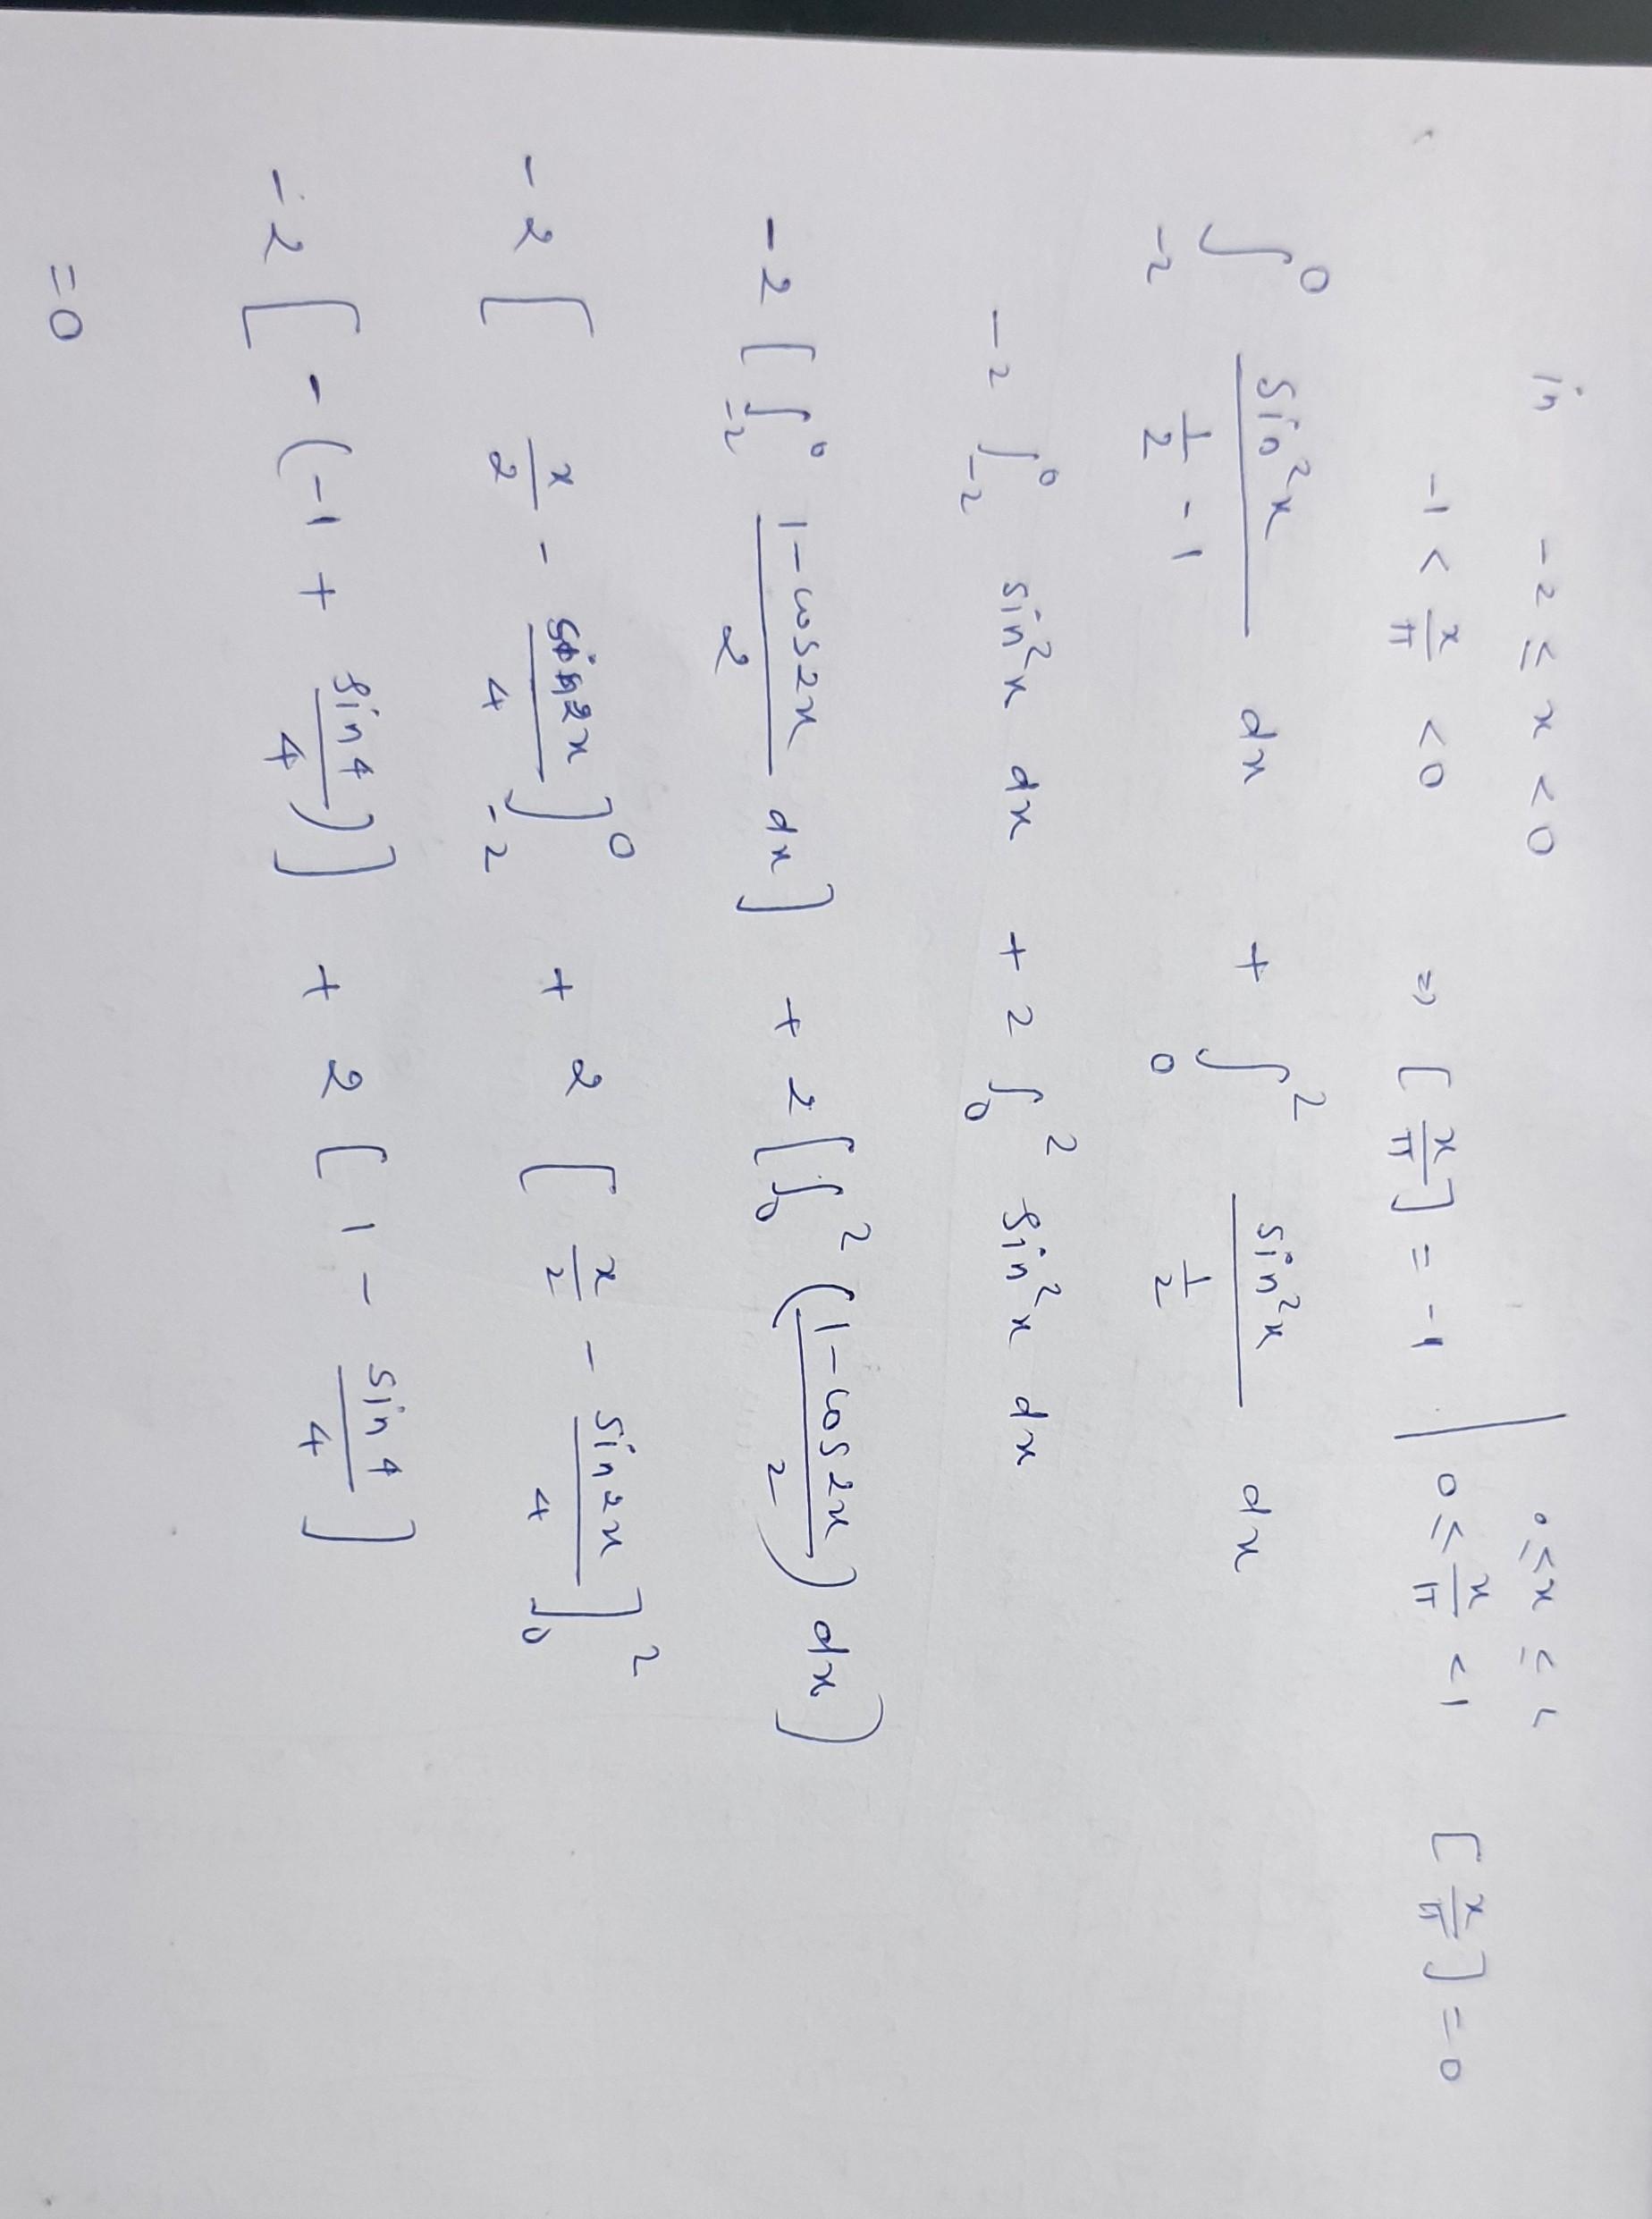 in -2 ≤ x < 0 0 ≤ x ≤ 2
-1 < x/π < 0 ⇒ [x/π] = -1 | 0 ≤ x/π < 1 [x/π] = 0
∫_{-2}^{0} sin²x/(1/2 - 1) dx + ∫_{0}^{2} sin²x/(1/2) dx
-2 ∫_{-2}^{0} sin²x dx + 2 ∫_{0}^{2} sin²x dx
-2 [∫_{-2}^{0} (1-cos2x)/2 dx] + 2 [∫_{0}^{2} ((1-cos2x)/2) dx)
-2 [x/2 - sin2x/4]_{-2}^{0} + 2 [x/2 - sin2x/4]_{0}^{2}
-2 [-(-1 + sin4/4)] + 2 [1 - sin4/4]
=0